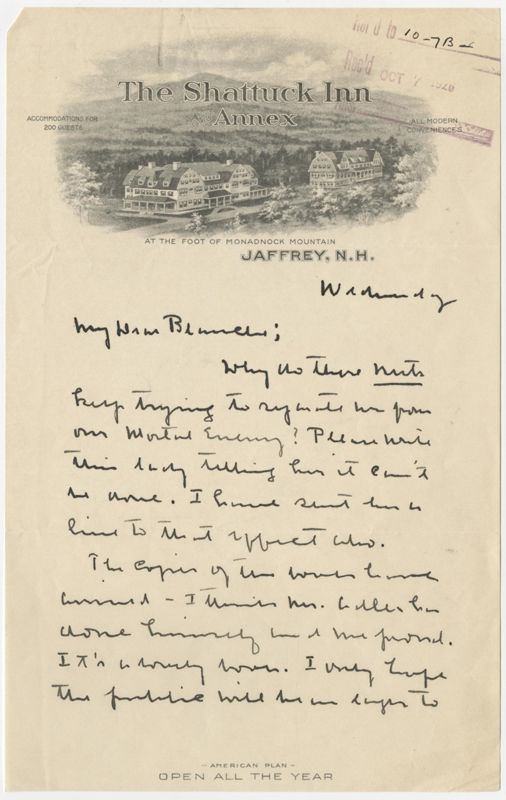 Rec'd to 10-7B
Rec'd OCT 7 1926
The Shattuck Inn
AND Annex
ACCOMMODATIONS FOR
200 GUESTS
ALL MODERN
CONVENIENCES
AT THE FOOT OF MONADNOCK MOUNTAIN
JAFFREY, N.H.
Wednesday
My Dear Blanche;
Why do these nuts
keep trying to separate me from
our Mortal Enemy? Please write
this lady telling her it can't
be done. I have sent her a
line to that effect also.
The copies of the book have
arrived - I think Mr. Adler has
done himself and me proud.
It's a lovely book. I only hope
the public will be as eager to
- AMERICAN PLAN -
OPEN ALL THE YEAR